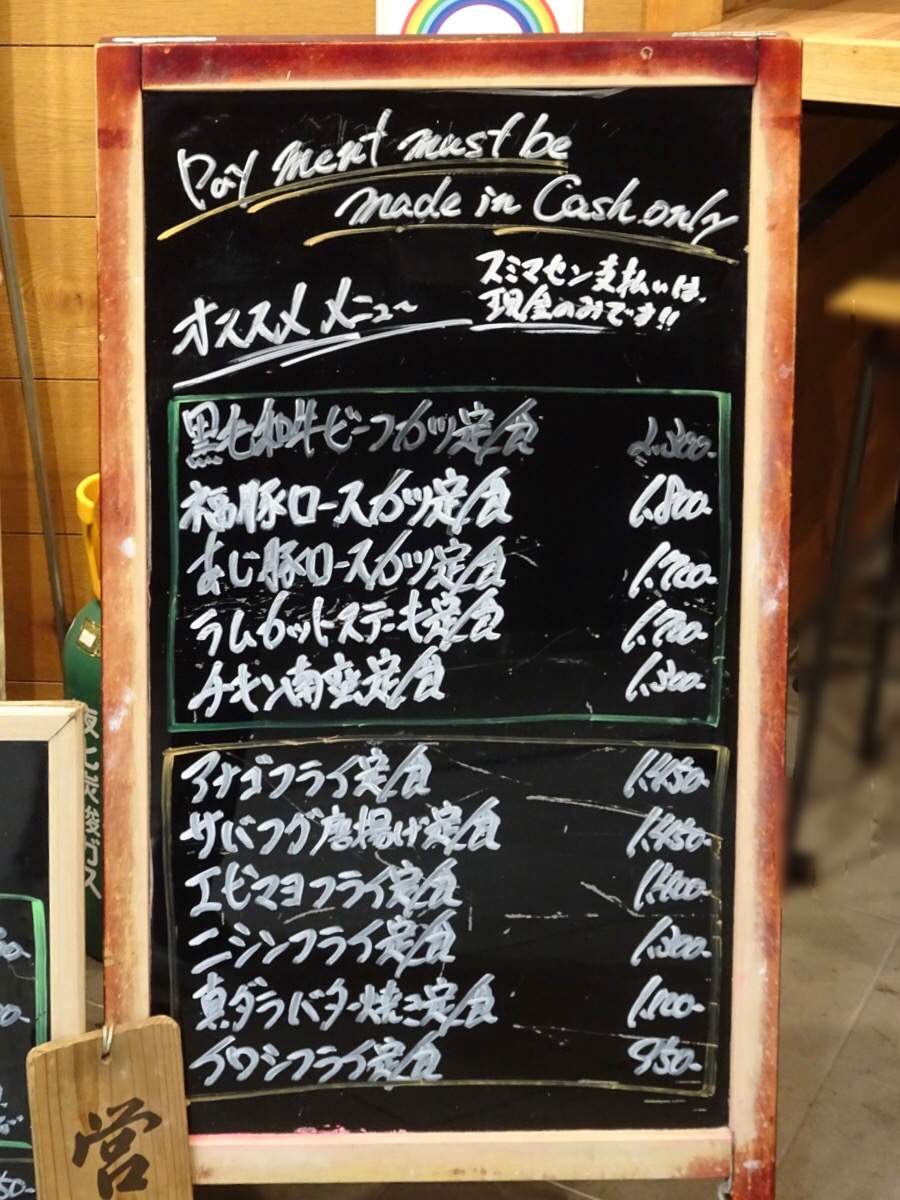 Payment must be
made in Cash only
スミマセン支払いは、
現金のみです!!
オススメメニュー
黒毛和牛ビーフカツ定食
福豚ロースカツ定食 1,800-
あじ豚ロースカツ定食 1,700-
ラムカットステーキ定食 1,700-
チキン南蛮定食 1,300-
アナゴフライ定食 1,450-
サバフグ唐揚げ定食 1,450-
エビマヨフライ定食 1,400-
ニシンフライ定食 1,300-
真ダラバター焼き定食
イワシフライ定食 950-
営